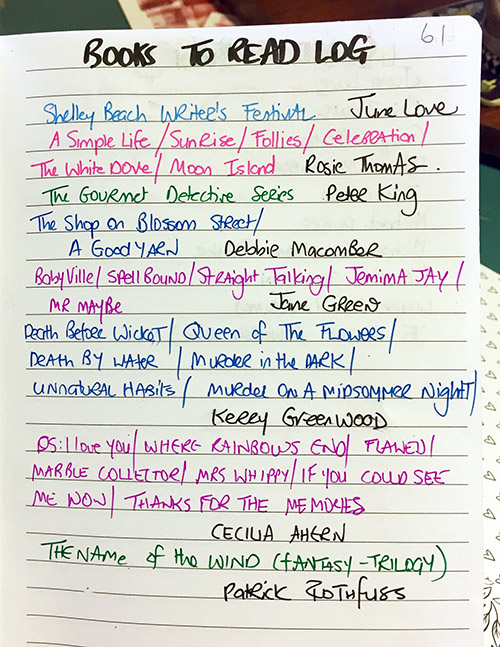 61
BOOKS TO READ LOG
Shelley Beach Writer's Festival June Love
A Simple Life / Sunrise / Follies / Celebration /
The White Dove / Moon Island Rosie Thomas.
The Gourmet Detective Series Peter King
The Shop on Blossom Street /
A Good YARN Debbie Macomber
BabyVille / SpellBound / Straight Talking / JEMIMA JAY /
MR MAYBE Jane Green
Death Before Wicket / Queen of The Flowers /
DEATH BY WATER / Murder in the DARK /
UNNATURAL HABITS / MURDER ON A MIDSOMMER NIGHT /
Kerry GreenWOOD
PS: I love you / WHERE RAINBOWS END / FLAWED /
MARBLE COLLECTOR / MRS WHIPPY / IF YOU COULD SEE
ME NOW / THANKS FOR THE MEMORIES
CECILIA AHERN
THE NAME of the WIND (FANTASY - TRILOGY)
Patrick Rothfuss